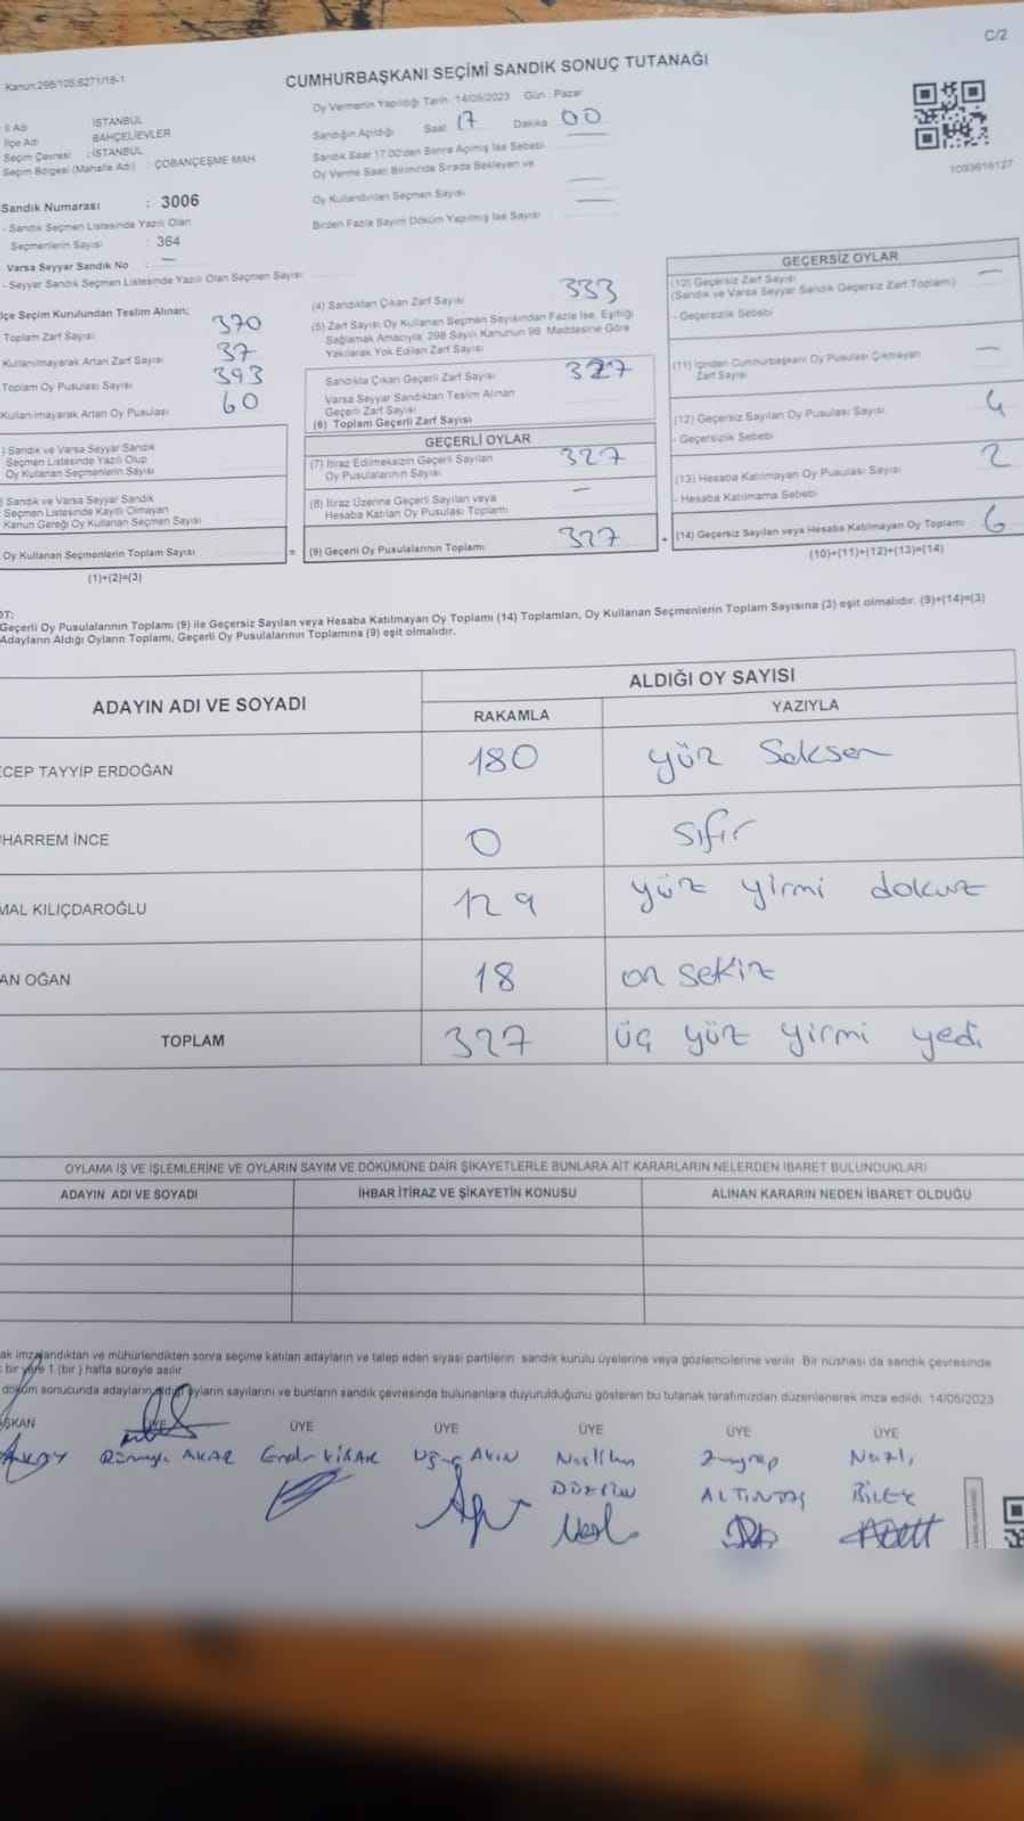 C/2
Kanun:298/105,6271/18-1
CUMHURBAŞKANI SEÇİMİ SANDIK SONUÇ TUTANAĞI
Oy Vermenin Yapıldığı Tarih: 14/05/2023 Gün: Pazar
İl Adı İSTANBUL
İlçe Adı BAHÇELİEVLER
Seçim Çevresi : İSTANBUL
Seçim Bölgesi (Mahalle Adı) : ÇOBANÇEŞME MAH
Sandığın Açıldığı Saat 17 Dakika 00
Sandık Saat 17.00'den Sonra Açılmış İse Sebebi
Oy Verme Saati Bitiminde Sırada Bekleyen ve
Oy Kullandırılan Seçmen Sayısı
Birden Fazla Sayım Döküm Yapılmış İse Sayısı
Sandık Numarası : 3006
- Sandık Seçmen Listesinde Yazılı Olan
Seçmenlerin Sayısı : 364
Varsa Seyyar Sandık No : —
- Seyyar Sandık Seçmen Listesinde Yazılı Olan Seçmen Sayısı
lçe Seçim Kurulundan Teslim Alınan;
Toplam Zarf Sayısı 370
Kullanılmayarak Artan Zarf Sayısı 37
Toplam Oy Pusulası Sayısı 393
Kullanılmayarak Artan Oy Pusulası 60
) Sandık ve Varsa Seyyar Sandık
Seçmen Listesinde Yazılı Olup
Oy Kullanan Seçmenlerin Sayısı
Sandık ve Varsa Seyyar Sandık
Seçmen Listesinde Kayıtlı Olmayan
Kanun Gereği Oy Kullanan Seçmen Sayısı
Oy Kullanan Seçmenlerin Toplam Sayısı
(1)+(2)=(3)
(4) Sandıktan Çıkan Zarf Sayısı 333
(5) Zarf Sayısı Oy Kullanan Seçmen Sayısından Fazla İse, Eşitliği
Sağlamak Amacıyla 298 Sayılı Kanunun 98. Maddesine Göre
Yakılarak Yok Edilen Zarf Sayısı
Sandıkta Çıkan Geçerli Zarf Sayısı 327
Varsa Seyyar Sandıktan Teslim Alınan
Geçerli Zarf Sayısı
(6) Toplam Geçerli Zarf Sayısı
GEÇERLİ OYLAR
(7) İtiraz Edilmeksizin Geçerli Sayılan
Oy Pusulalarının Sayısı 327
(8) İtiraz Üzerine Geçerli Sayılan veya
Hesaba Katılan Oy Pusulası Toplamı —
= (9) Geçerli Oy Pusulalarının Toplamı 327
GEÇERSİZ OYLAR
(10) Geçersiz Zarf Sayısı —
(Sandık ve Varsa Seyyar Sandık Geçersiz Zarf Toplamı)
- Geçersizlik Sebebi
(11) İçinden Cumhurbaşkanı Oy Pusulası Çıkmayan —
Zarf Sayısı
(12) Geçersiz Sayılan Oy Pusulası Sayısı 4
- Geçersizlik Sebebi
(13) Hesaba Katılmayan Oy Pusulası Sayısı 2
- Hesaba Katılmama Sebebi
+ (14) Geçersiz Sayılan veya Hesaba Katılmayan Oy Toplamı 6
(10)+(11)+(12)+(13)=(14)
OT:
Geçerli Oy Pusulalarının Toplamı (9) ile Geçersiz Sayılan veya Hesaba Katılmayan Oy Toplamı (14) Toplamları, Oy Kullanan Seçmenlerin Toplam Sayısına (3) eşit olmalıdır. (9)+(14)=(3)
Adayların Aldığı Oyların Toplamı, Geçerli Oy Pusulalarının Toplamına (9) eşit olmalıdır.
ADAYIN ADI VE SOYADI ALDIĞI OY SAYISI
RAKAMLA YAZIYLA
CEP TAYYİP ERDOĞAN 180 yüz Seksen
HARREM İNCE 0 sıfır
MAL KILIÇDAROĞLU 129 yüz yirmi dokuz
AN OĞAN 18 on sekiz
TOPLAM 327 üç yüz yirmi yedi
OYLAMA İŞ VE İŞLEMLERİNE VE OYLARIN SAYIM VE DÖKÜMÜNE DAİR ŞİKAYETLERLE BUNLARA AİT KARARLARIN NELERDEN İBARET BULUNDUKLARI
ADAYIN ADI VE SOYADI İHBAR İTİRAZ VE ŞİKAYETİN KONUSU ALINAN KARARIN NEDEN İBARET OLDUĞU
ak imzalandıktan ve mühürlendikten sonra seçime katılan adayların ve talep eden siyasi partilerin sandık kurulu üyelerine veya gözlemcilerine verilir. Bir nüshası da sandık çevresinde
bir yere 1 (bir) hafta süreyle asılır.
döküm sonucunda adayların aldığı oyların sayılarını ve bunların sandık çevresinde bulunanlara duyurulduğunu gösteren bu tutanak tarafımızdan düzenlenerek imza edildi. 14/05/2023
ŞKAN ÜYE ÜYE ÜYE ÜYE ÜYE ÜYE
AKAR Uğur AKIN Zeynep
ALTINTAŞ BİLEK